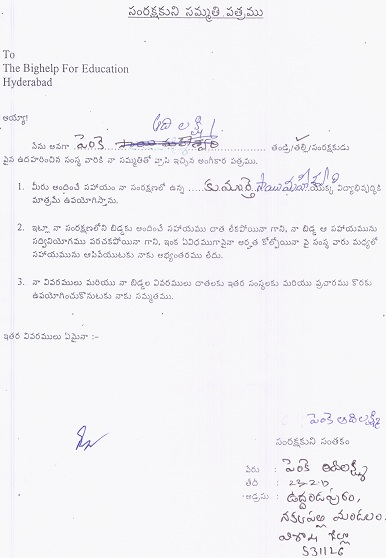 సంరక్షకుని సమ్మతి పత్రము
To
The Bighelp For Education
Hyderabad
అయ్యా!
ఆది లక్ష్మి
నేను అనగా పెంకె తండ్రి/తల్లి/సంరక్షకుడు
పైన ఉదహరించిన సంస్థ వారికి నా సమ్మతితో వ్రాసి ఇచ్చిన అంగీకార పత్రము.
1. మీరు అందించే సహాయం నా సంరక్షణలో ఉన్న కుమార్తె యొక్క విద్యాభివృద్ధికి
మాత్రమే ఉపయోగిస్తాను.
2. ఇట్లా నా సంరక్షణలోని బిడ్డకు అందించే సహాయము దాత లేకపోయినా గాని, నా బిడ్డ ఆ సహాయమును
సద్వినియోగము పరచకపోయినా గాని, ఇంక ఏవిధముగానైనా అర్హత కోల్పోయినా పై సంస్థ వారు మధ్యలో
సహాయమును ఆపివేయుటకు నాకు అభ్యంతరము లేదు.
3. నా వివరములు మరియు నా బిడ్డల వివరములు దాతలకు ఇతర సంస్థలకు మరియు ప్రచారము కొరకు
ఉపయోగించుకొనుటకు నాకు సమ్మతము.
ఇతర వివరములు ఏమైనా :-
పెంకె ఆదిలక్ష్మి
సంరక్షకుని సంతకం
పేరు : పెంకె ఆదిలక్ష్మి
తేదీ :
అడ్రసు : ఉద్దండపురం,
నక్కపల్లి మండలం.
విశాఖ జిల్లా
531126